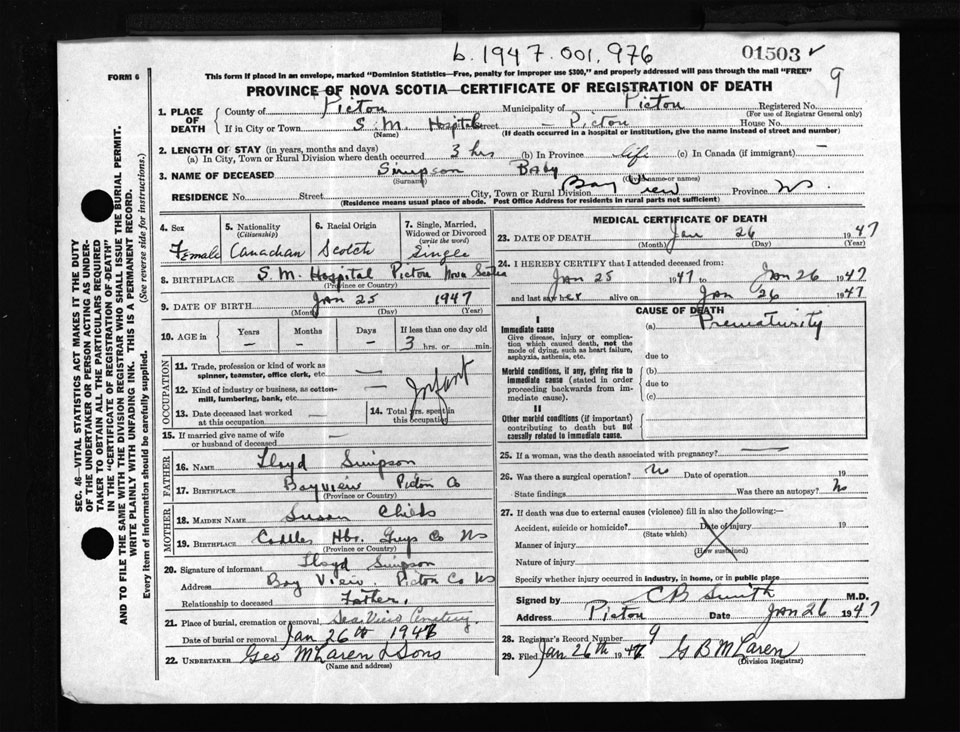 b. 1947.001,976
01503 ✓
9
FORM 6
This form if placed in an envelope, marked "Dominion Statistics—Free, penalty for improper use $300," and properly addressed will pass through the mail "FREE"
PROVINCE OF NOVA SCOTIA—CERTIFICATE OF REGISTRATION OF DEATH
SEC. 46—VITAL STATISTICS ACT MAKES IT THE DUTY
OF THE UNDERTAKER OR PERSON ACTING AS UNDER-
TAKER TO OBTAIN ALL THE PARTICULARS REQUIRED
IN THE "CERTIFICATE OF REGISTRATION OF DEATH"
AND TO FILE THE SAME WITH THE DIVISION REGISTRAR WHO SHALL ISSUE THE BURIAL PERMIT.
WRITE PLAINLY WITH UNFADING INK. THIS IS A PERMANENT RECORD.
Every item of information should be carefully supplied. (See reverse side for instructions.)
1. PLACE OF DEATH
County of Pictou Municipality of Pictou Registered No.
(For use of Registrar General only)
If in City or Town S. M. Hospital Street — Pictou House No.
(Name) (If death occurred in a hospital or institution, give the name instead of street and number)
2. LENGTH OF STAY (in years, months and days)
(a) In City, Town or Rural Division where death occurred 3 hrs (b) In Province life (c) In Canada (if immigrant) —
3. NAME OF DECEASED Simpson Baby
(Surname) (Given name or names)
RESIDENCE No. Street City, Town or Rural Division Bay View Province NS.
(Residence means usual place of abode. Post Office Address for residents in rural parts not sufficient)
4. Sex Female
5. Nationality (Citizenship) Canadian
6. Racial Origin Scotch
7. Single, Married, Widowed or Divorced (write the word) Single
8. BIRTHPLACE S. M. Hospital Pictou Nova Scotia
(Province or Country)
9. DATE OF BIRTH Jan 25 1947
(Month) (Day) (Year)
10. AGE Years — Months — Days — If less than one day old 3 hrs. or min.
OCCUPATION
11. Trade, profession or kind of work as spinner, teamster, office clerk, etc. —
12. Kind of industry or business, as cotton-mill, lumbering, bank, etc. —
Infant
13. Date deceased last worked at this occupation —
14. Total yrs. spent in this occupation
15. If married give name of wife or husband of deceased —
FATHER
16. NAME Lloyd Simpson
17. BIRTHPLACE Bayview Pictou Co
(Province or Country)
MOTHER
18. MAIDEN NAME Susan Childs
19. BIRTHPLACE Coddles Hbr. Guys Co NS
(Province or Country)
20. Signature of informant Lloyd Simpson
Address Bay View. Pictou Co NS
Relationship to deceased Father.
21. Place of burial, cremation or removal Sea View Cemetery.
Date of burial or removal Jan 26th 1947
22. UNDERTAKER Geo McLaren & Sons
(Name and address)
MEDICAL CERTIFICATE OF DEATH
23. DATE OF DEATH Jan 26 1947
(Month) (Day) (Year)
24. I HEREBY CERTIFY that I attended deceased from:
Jan 25 1947 to Jan 26 1947
and last saw her alive on Jan 26 1947
CAUSE OF DEATH
I
Immediate cause (a) Prematurity
Give disease, injury or complica-
tion which caused death, not the
mode of dying, such as heart failure,
asphyxia, asthenia, etc. due to
Morbid conditions, if any, giving rise to (b)
immediate cause (stated in order due to
proceeding backwards from im-
mediate cause). (c)
II
Other morbid conditions (if important)
contributing to death but not
causally related to immediate cause.
25. If a woman, was the death associated with pregnancy? —
26. Was there a surgical operation? No Date of operation 19
State findings Was there an autopsy? No
27. If death was due to external causes (violence) fill in also the following:—
Accident, suicide or homicide? Date of injury 19
(State which)
Manner of injury
(How sustained)
Nature of injury
Specify whether injury occurred in industry, in home, or in public place
Signed by C B Smith M.D.
Address Pictou Date Jan 26 1947
28. Registrar's Record Number 9
29. Filed Jan 26th 1947 G B McLaren
(Division Registrar)